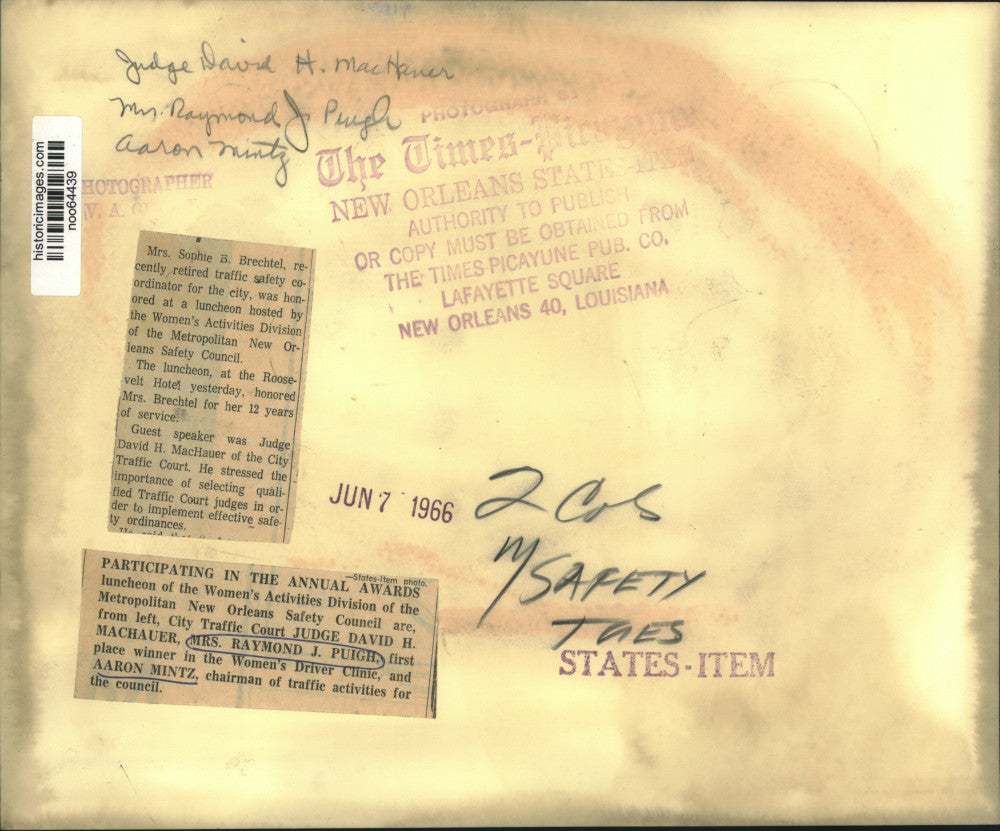 Judge David H. MacHauer
Mrs. Raymond J. Puigh
Aaron Mintz
historicimages.com
noo64439
PHOTOGRAPH BY
The Times-Picayune
NEW ORLEANS STATES-ITEM
AUTHORITY TO PUBLISH
OR COPY MUST BE OBTAINED FROM
THE TIMES-PICAYUNE PUB. CO.
LAFAYETTE SQUARE
NEW ORLEANS 40, LOUISIANA
HOTOGRAPHER
V. A.
Mrs. Sophie B. Brechtel, re-
cently retired traffic safety co-
ordinator for the city, was hon-
ored at a luncheon hosted by
the Women's Activities Division
of the Metropolitan New Or-
leans Safety Council.
The luncheon, at the Roose-
velt Hotel yesterday, honored
Mrs. Brechtel for her 12 years
of service.
Guest speaker was Judge
David H. MacHauer of the City
Traffic Court. He stressed the
importance of selecting quali-
fied Traffic Court judges in or-
der to implement effective safe-
ty ordinances.
JUN 7 1966
2 Cols
W/SAFETY
TUES
STATES-ITEM
—States-Item photo.
PARTICIPATING IN THE ANNUAL AWARDS
luncheon of the Women's Activities Division of the
Metropolitan New Orleans Safety Council are,
from left, City Traffic Court JUDGE DAVID H.
MACHAUER, MRS. RAYMOND J. PUIGH, first
place winner in the Women's Driver Clinic, and
AARON MINTZ, chairman of traffic activities for
the council.